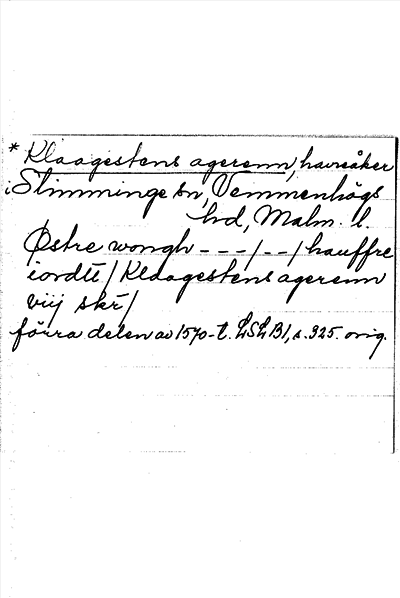 * Klaagestens agerenn, havreåker
i Slimminge sn, Vemmenhögs
hd, Malm. l.
Østre wongh - - - / - - / hauffre
iordtt / Klaagestens agerenn
viij skr /
förra delen av 1570-t. LSLB1, s. 325. orig.